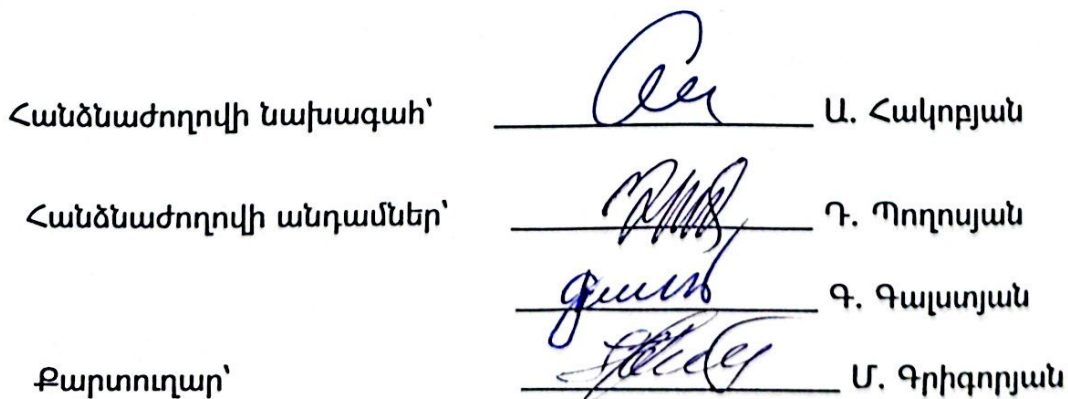 Հանձնաժողովի նախագահ՝ Ա. Հակոբյան
Հանձնաժողովի անդամներ՝ Դ. Պողոսյան
Գ. Գալստյան
Քարտուղար՝ Մ. Գրիգորյան